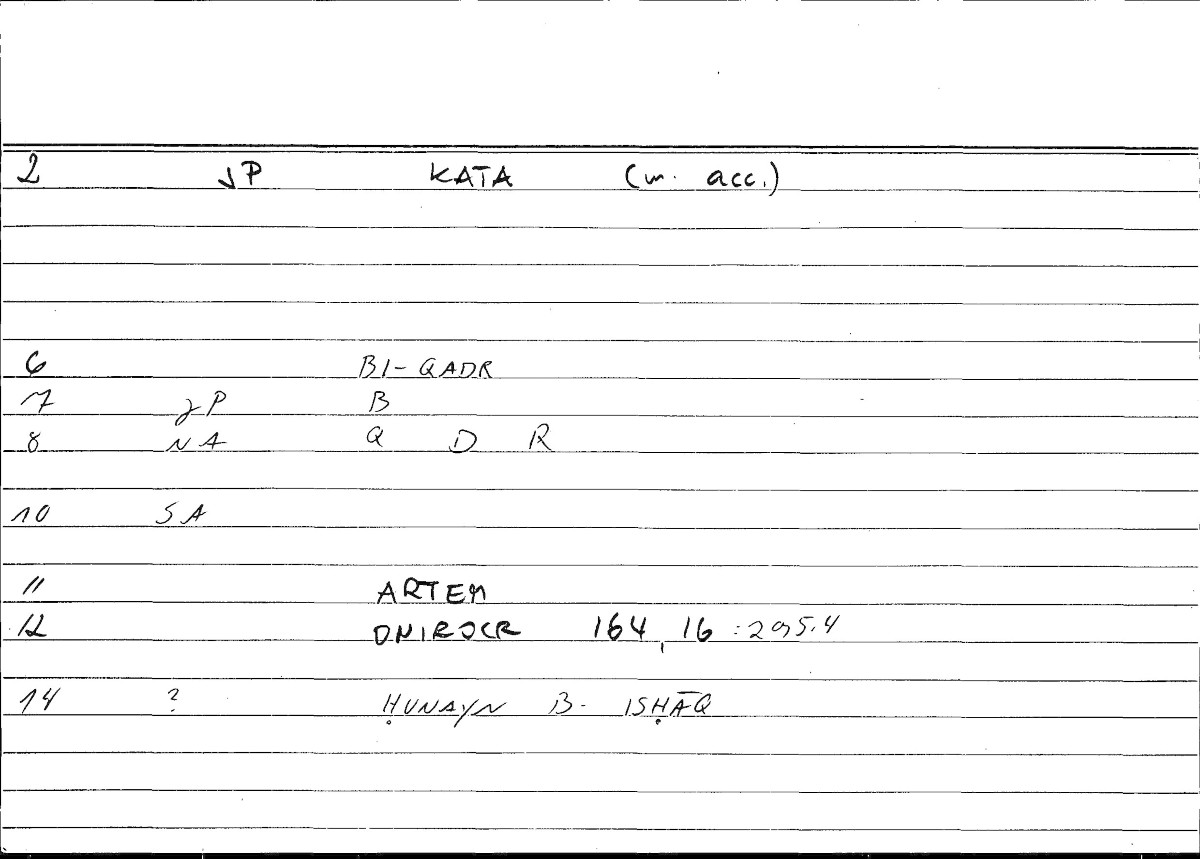 2 JP KATA (m. acc.)
6 BI-QADR
7 JP B
8 NA Q D R
10 SA
11 ARTEM
12 ONIROCR 164,16 : 295.4
14 ? ḤUNAYN B. ISḤĀQ